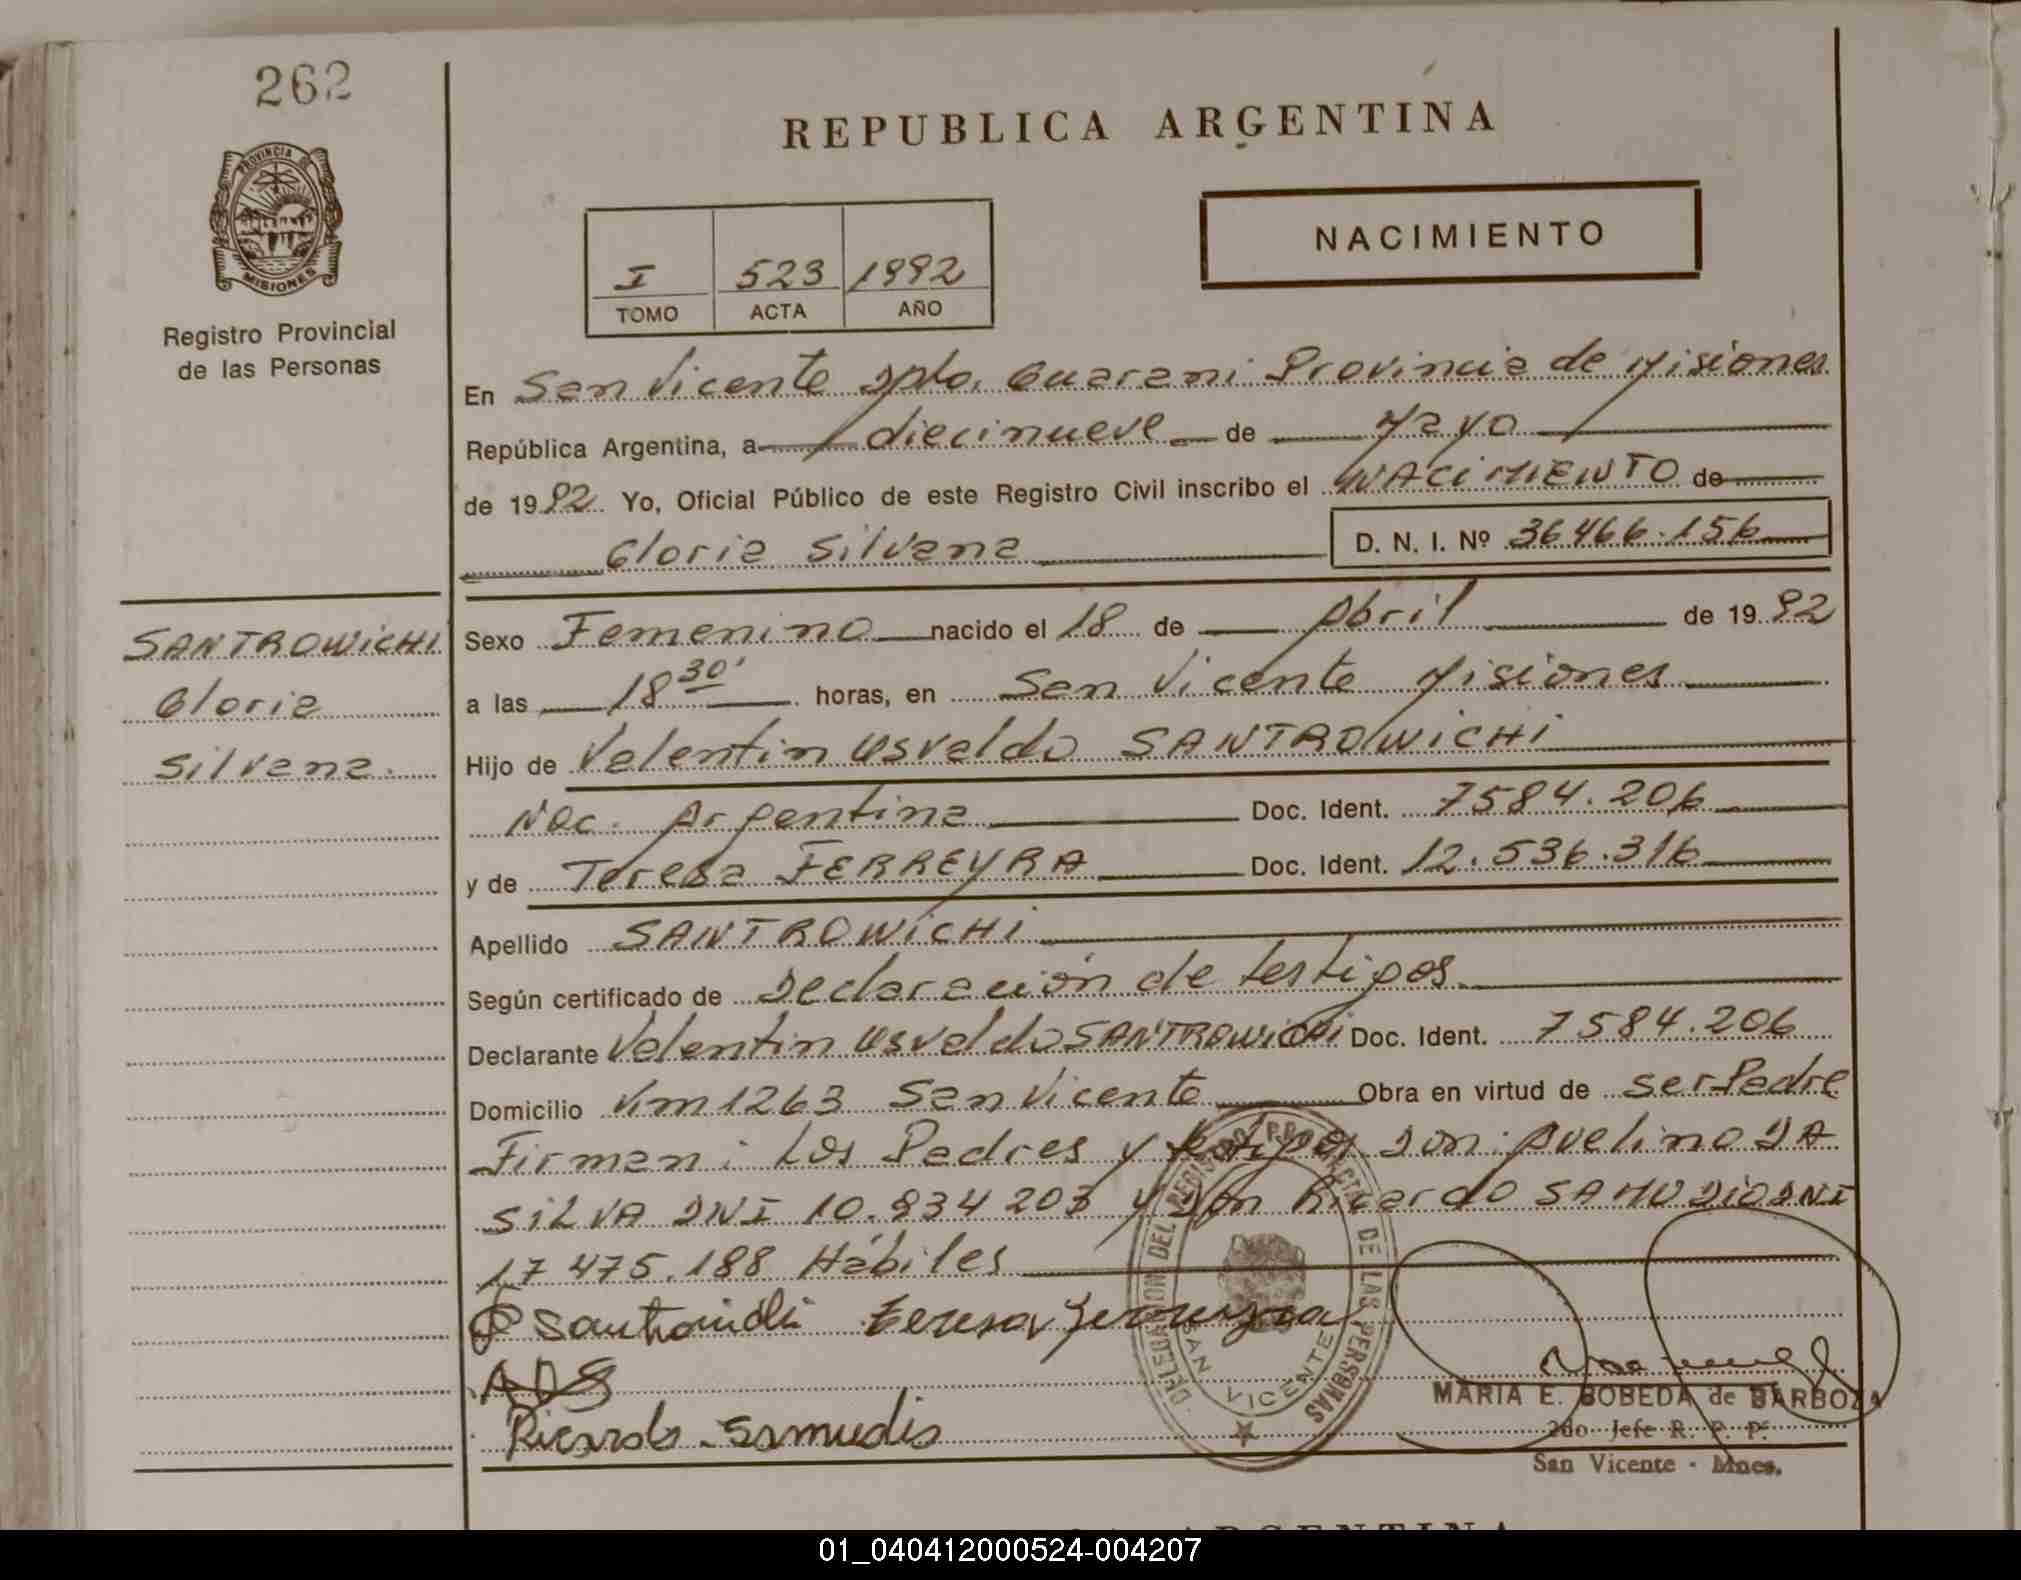 262
PROVINCIA DE
MISIONES
Registro Provincial
de las Personas
REPUBLICA ARGENTINA
NACIMIENTO
I 523 1992
TOMO ACTA AÑO
En San Vicente Dpto. Guarani Provincia de Misiones
República Argentina, a diecinueve de Mayo
de 1992 Yo, Oficial Público de este Registro Civil inscribo el NACIMIENTO de
Gloria Silvana D. N. I. Nº 36466.156
SANTROWICHI
Gloria
Silvana.
Sexo Femenino nacido el 18 de Abril de 1992
a las 18 30' horas, en San Vicente Misiones
Hijo de Valentin Osvaldo SANTROWICHI
Nac. Argentina Doc. Ident. 7584.206
y de Teresa FERREYRA Doc. Ident. 12.536.316
Apellido SANTROWICHI
Según certificado de Declaración de testigos
Declarante Valentin Osvaldo SANTROWICHI Doc. Ident. 7584.206
Domicilio Km 1263 San Vicente Obra en virtud de ser Padre
Firman: Los Padres y testigos Don: Avelino DA
SILVA DNI 10.834 203 y Don Ricardo SAMUDIO DNI
17 475.188 Hábiles
Teresa Ferreyra
ADS
Ricardo Samudio
DELEGACION DEL REGISTRO PROVINCIAL DE LAS PERSONAS
SAN VICENTE
MARIA E. BOBEDA de BARBOZA
2do Jefe R. P. P.
San Vicente - Mnes.
ARGENTINA
01_040412000524-004207